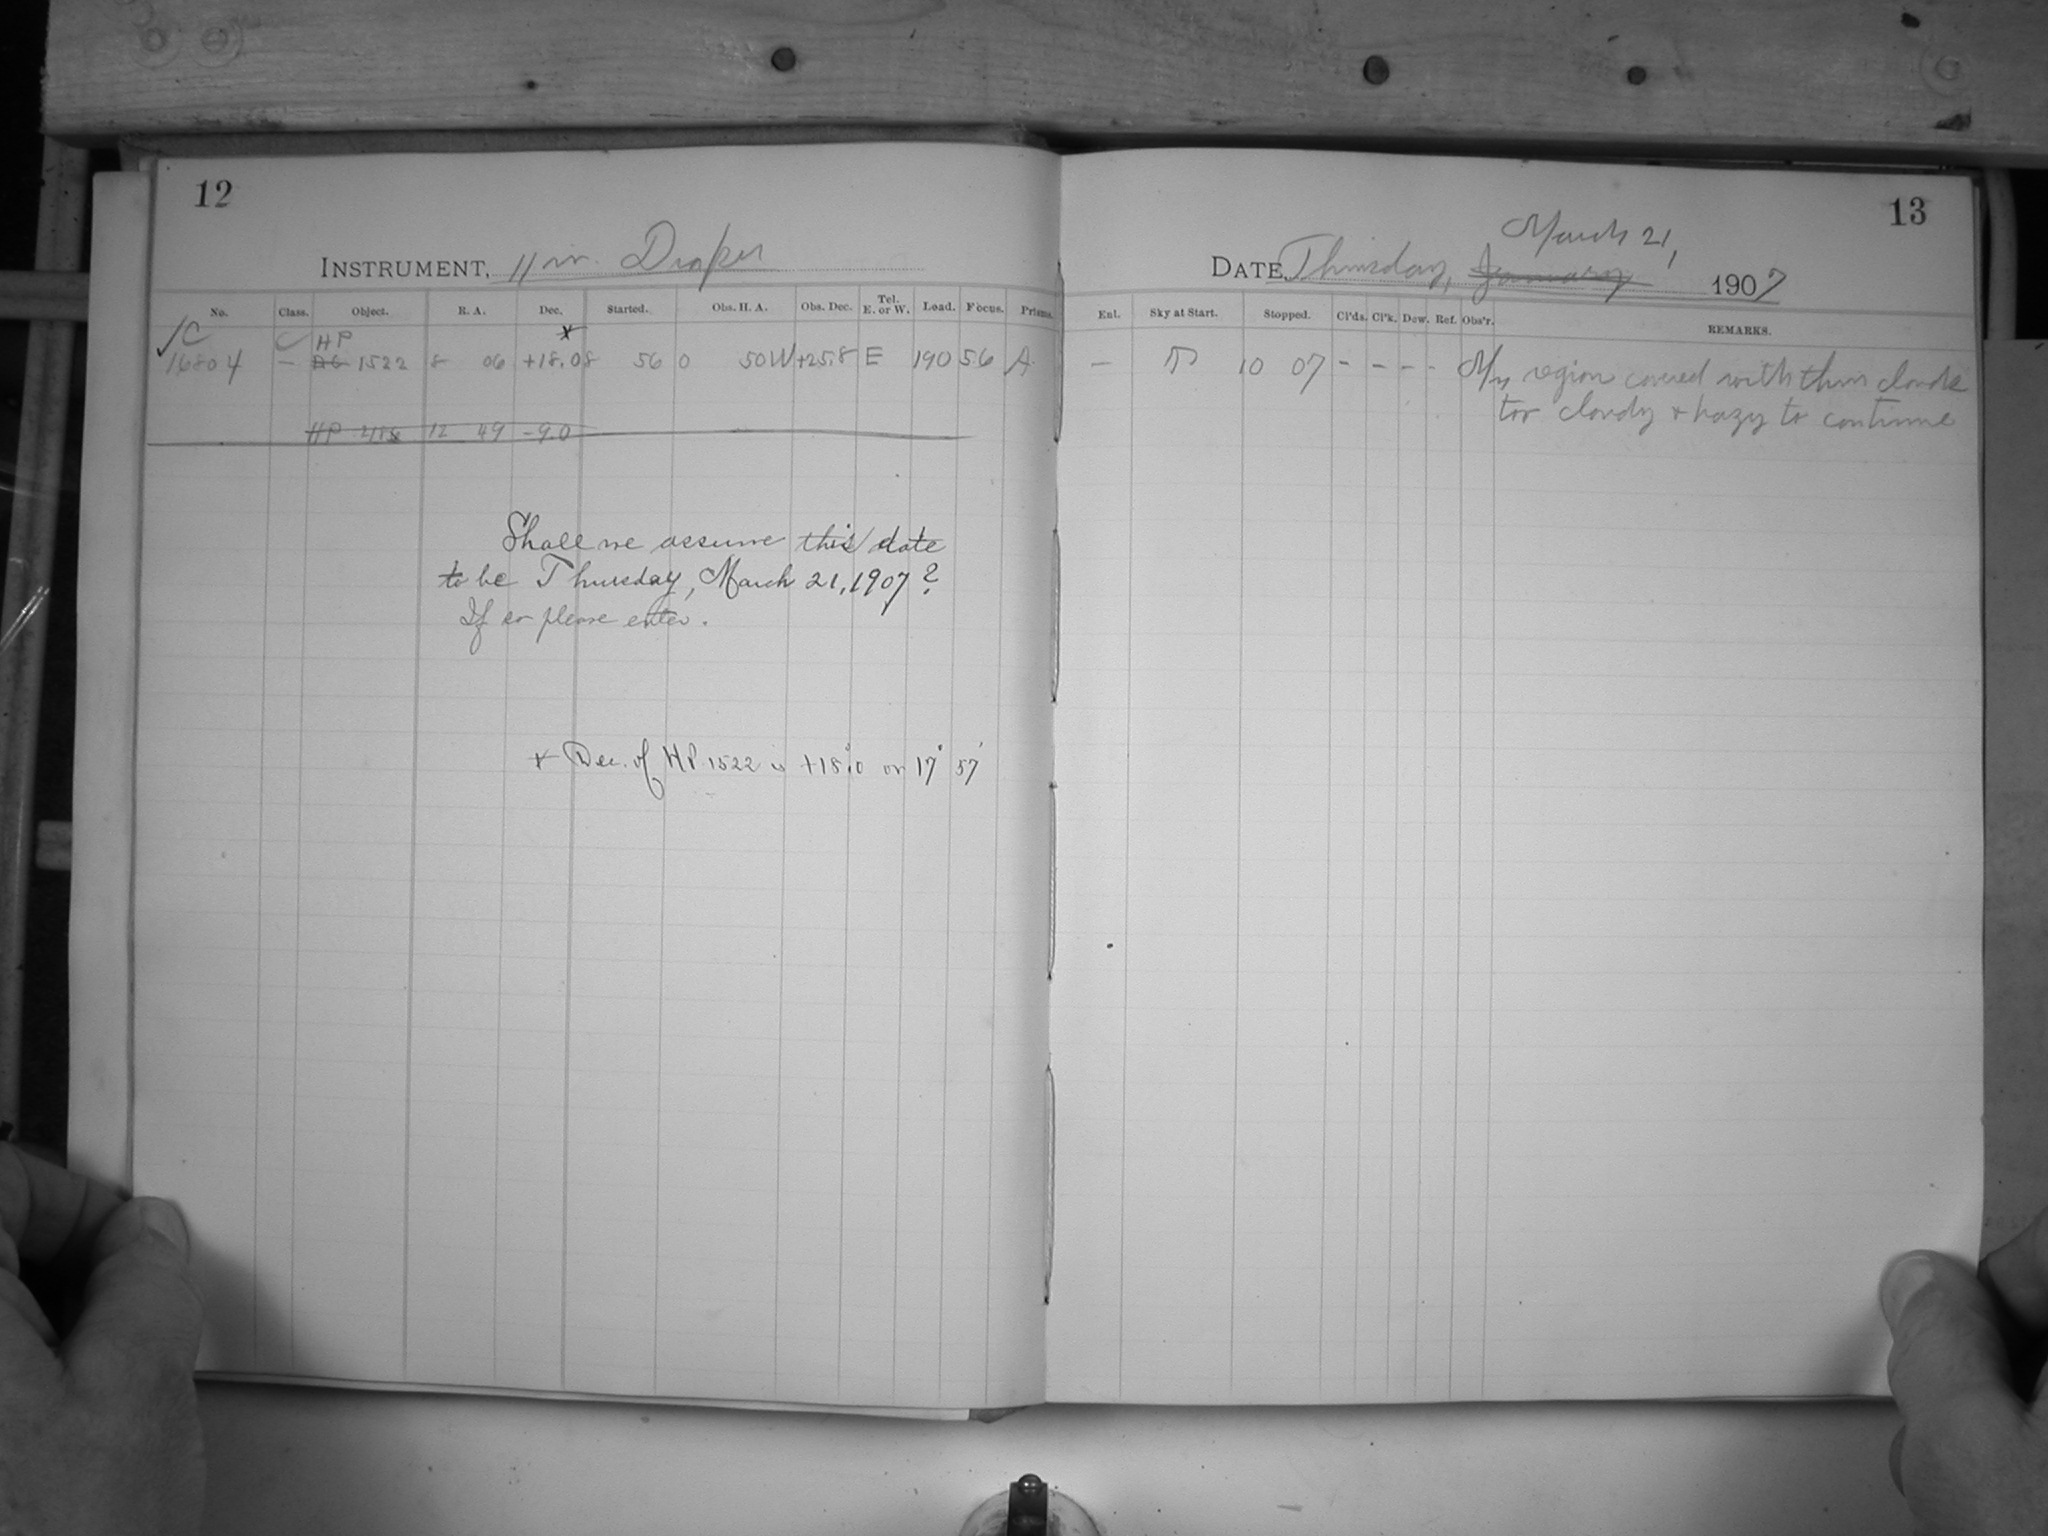 12
INSTRUMENT, 11 in. Draper
No. Class. Object. R. A. Dec. Started. Obs. H. A. Obs. Dec. Tel. E. or W. Load. Focus. Prisms.
✓C C HP *
16804 – AG 1522 8 06 +18.0 8 56 0 50W +25.8 E 190 56 A
HP 12 49 -9.0
Shall we assume this date
to be Thursday, March 21, 1907?
If so please enter.
* Dec. of HP 1522 is +18°.0 or 17° 57'
13
March 21,
DATE, Thursday, January 1907
Enl. Sky at Start. Stopped. Cl'ds. Cl'k. Dew. Ref. Obs'r. REMARKS.
– 10 07 – – – - My region covered with thin clouds
too cloudy & hazy to continue